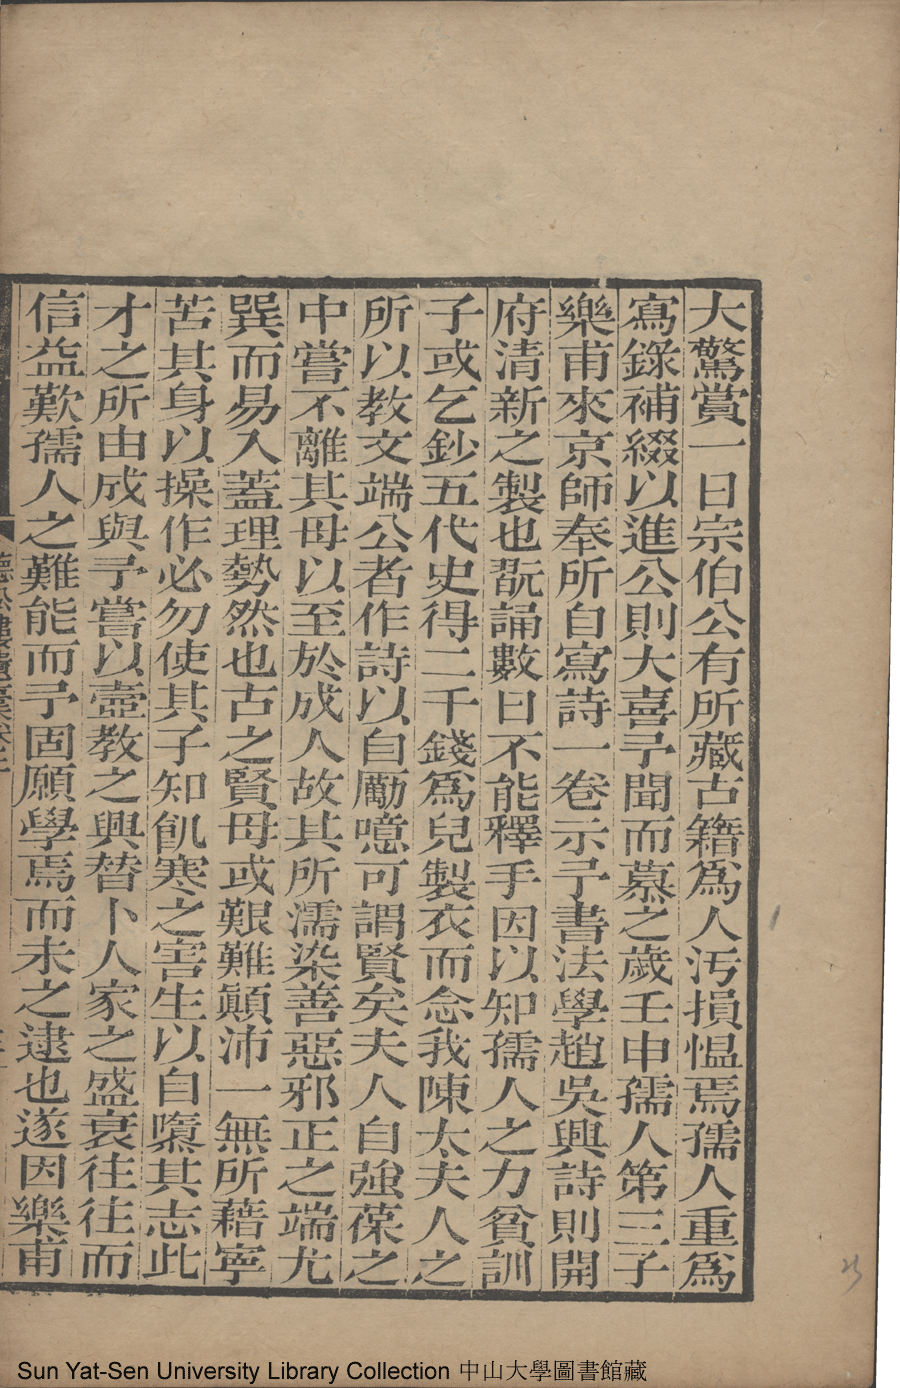 大驚賞一日宗伯公有所藏古籍為人汚損愠焉孺人重為
寫錄補綴以進公則大喜予聞而慕之歲壬申孺人第三子
樂甫來京師奉所自寫詩一卷示予書法學趙吳興詩則開
府清新之製也翫誦數日不能釋手因以知孺人之力貧訓
子或乞鈔五代史得二千錢為兒製衣而念我陳太夫人之
所以教文端公者作詩以自勵噫可謂賢矣夫人自強葆之
中嘗不離其母以至於成人故其所濡染善惡邪正之端尤
巽而易入蓋理勢然也古之賢母或艱難顛沛一無所藉寧
苦其身以操作必勿使其子知飢寒之害生以自隳其志此
才之所由成與予嘗以壼教之興替卜人家之盛衰往往而
信益歎孺人之難能而予固願學焉而未之逮也遂因樂甫
Sun Yat-Sen University Library Collection 中山大學圖書館藏